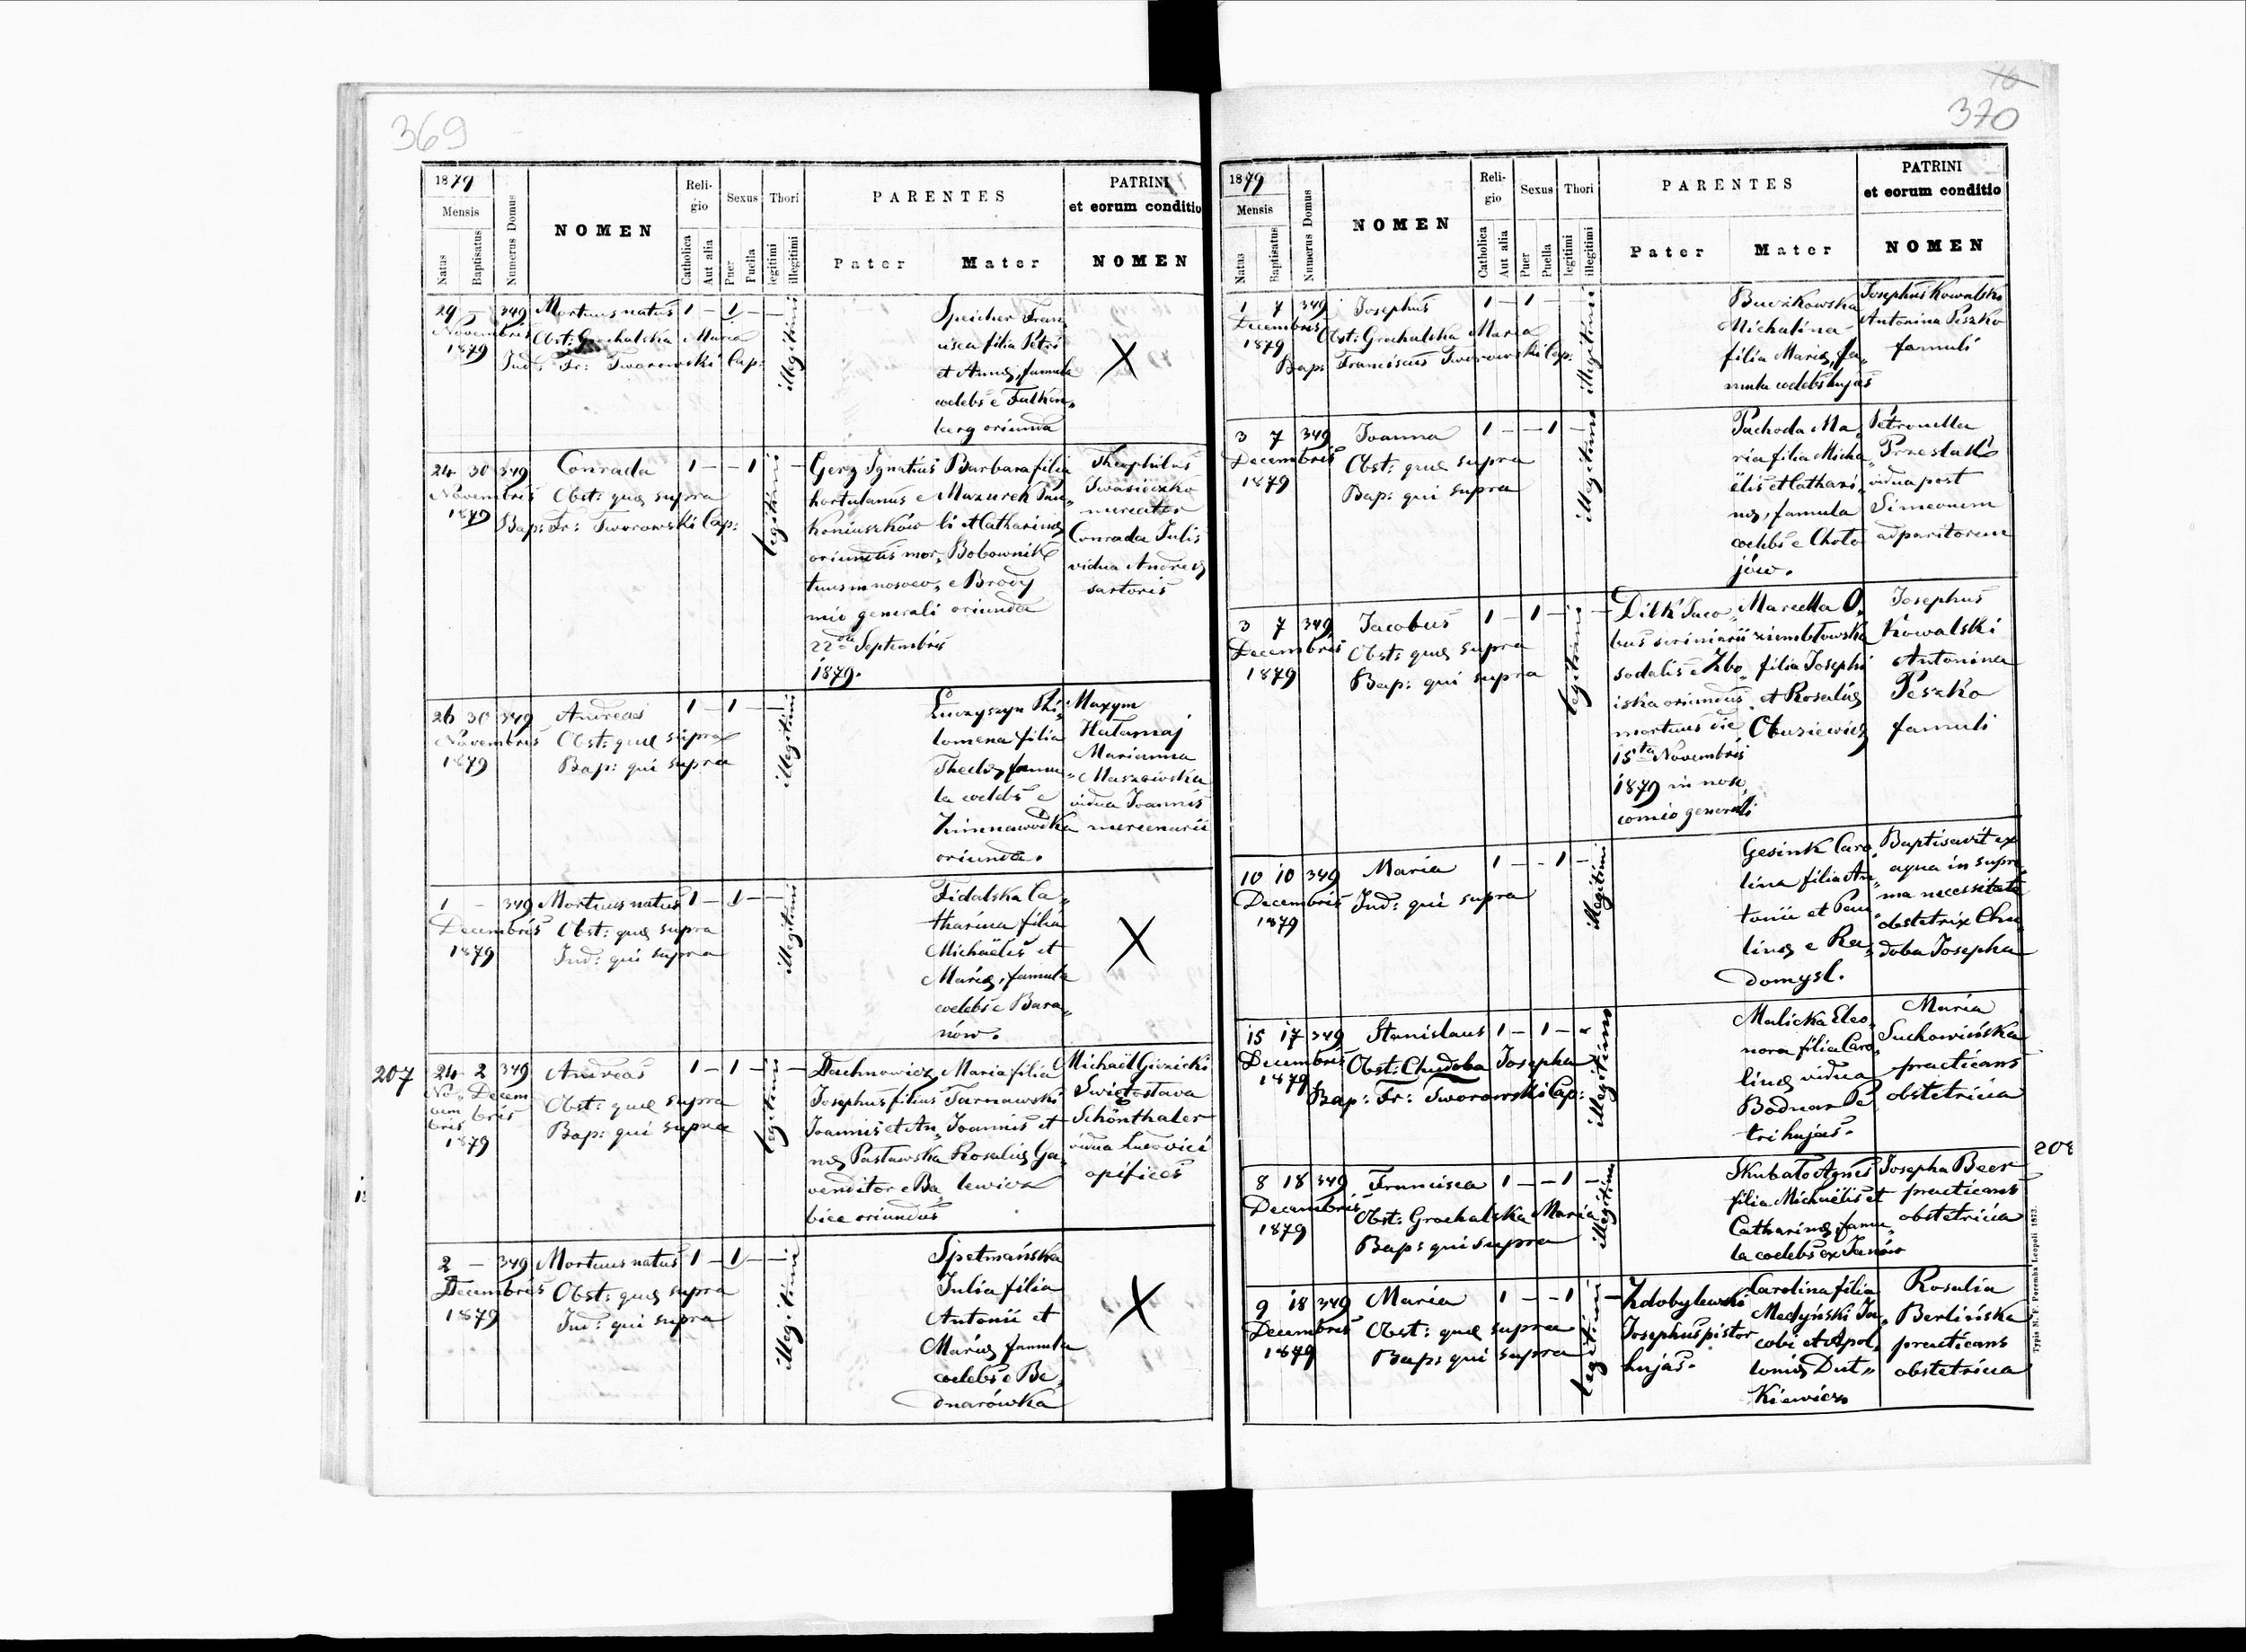 369
1879
Mensis
Natus
Baptisatus
Numerus Domus
NOMEN
Reli-
gio
Catholica
Aut alia
Sexus
Puer
Puella
Thori
legitimi
illegitimi
PARENTES
Pater
Mater
PATRINI
et eorum conditio
NOMEN
29 - 349 Mortuus natus 1 - 1 - -
Novembris
1879
Obst: Grochalska Maria
Ind: Fr: Tworowski Cap:
illegitimi
Speicher Fran
cisca filia Petri
et Annæ, famula
coelebs e Falken„
berg oriunda
X
24 30 349 Conrada 1 - - 1 -
Novembris
1879
Obst: quæ supra
Bap: Fr: Tworowski Cap:
legitimi
Gerz Ignatius
hortulanus e
Koniuszków
oriundus mor„
tuus in nosoco„
mio generali
22da Septembris
1879.
Barbara filia
Mazurek Pau„
li et Catharinæ
Bobownik
e Brody
oriunda
Theophilus
Iwasieczko
mercator
Conrada Julis
vidua Andreæ
sartoris
26 30 349 Andreas 1 - 1 - -
Novembris
1879
Obst: quæ supra
Bap: qui supra
illegitimi
Łuczyszyn Phi„
lomena filia
Theclæ, famu„
la coelebs e
Zimnawodka
oriunda.
Maxym
Hałamaj
Marianna
Maszowska
vidua Joannis
mercenarii
1 - 349 Mortuus natus 1 - 1 - -
Decembris
1879
Obst: quæ supra
Ind: qui supra
illegitimi
Fidalska Ca„
tharina filia
Michaëlis et
Mariæ, famula
coelebs e Bara„
nów.
X
207
24 2 349 Andreas 1 - 1 - -
No„ Decem
vem bris
bris
1879
Obst: quæ supra
Bap: qui supra
legitimi
Dachnowicz
Josephus filius
Joannis et An„
næ Pasławska
venditor e Ba„
bice oriundus
Maria filia
Tarnawski
Joannis et
Rosaliæ Ga„
lewicz
Michaël Gizicki
Swiętosława
Schönthaler
vidua Ludovici
opifices
2 - 349 Mortuus natus 1 - 1 - -
Decembris
1879
Obst: quæ supra
Ind: qui supra
illegitimi
Spetmańska
Julia filia
Antonii et
Mariæ famula
coelebs e Be„
dnarówka
X
370
1879
Mensis
Natus
Baptisatus
Numerus Domus
NOMEN
Reli-
gio
Catholica
Aut alia
Sexus
Puer
Puella
Thori
legitimi
illegitimi
PARENTES
Pater
Mater
PATRINI
et eorum conditio
NOMEN
1 7 349 Josephus 1 - 1 -
Decembris
1879
Obst: Grochalska Maria
Bap: Franciscus Tworowski Cap:
illegitimi
Buczkowska
Michalina
filia Mariæ, fa„
mula coelebs hujas
Josephus Kowalski
Antonina Peszko
famuli
3 7 349 Joanna 1 - - 1 -
Decembris
1879
Obst: quæ supra
Bap: qui supra
illegitimi
Pachoda Ma„
ria filia Micha„
ëlis et Cathari„
næ, famula
coelebs e Choto
jów.
Petronella
Przeslak
vidua post
Simeonem
adparitorem
3 7 349 Jacobus 1 - 1 - -
Decembris
1879
Obst: quæ supra
Bap: qui supra
legitimi
Dilk Jaco„
bus scriniarii
sodalis e Zbo„
iska oriundus
mortuus die
15ta Novembris
1879 in noso„
comio generali
Marcella O„
ziembłowska
filia Josephi
et Rosaliæ
Obusiewicz
Josephus
Kowalski
Antonina
Peszko
famuli
10 10 349 Maria 1 - - 1 -
Decembris
1879
Ind: qui supra
illegitimi
Gesink Caro„
lina filia An„
tonii et Pau„
linæ e Ra„
domysl.
Baptisavit ex
aqua in supre„
ma necessitate
obstetrix Chu„
doba Josepha
15 17 349 Stanislaus 1 - 1 -
Decembris
1879
Obst: Chudoba Josepha
Bap: Fr: Tworowski Cap:
illegitimi
Malicka Eleo„
nora filia Caro„
linæ vidua
Bodnar Pe
tri hujas.
Maria
Suchowińska
practicans
obstetricia
208
8 18 349 Francisca 1 - - 1 -
Decembris
1879
Obst: Grochalska Maria
Bap: qui supra
illegitimi
Skubało Agnes
filia Michaëlis et
Catharinæ, famu„
la coelebs ex Janów
Josepha Beer
practicans
obstetricia
9 18 349 Maria 1 - - 1 -
Decembris
1879
Obst: quæ supra
Bap: qui supra
legitimi
Zdobylewski
Josephus pistor
hujas.
Carolina filia
Medyński Ja„
cobi et Apol„
loniæ Dut„
kiewicz
Rosalia
Berlińska
practicans
obstetricia
Typis M. F. Poremba Leopoli 1873.